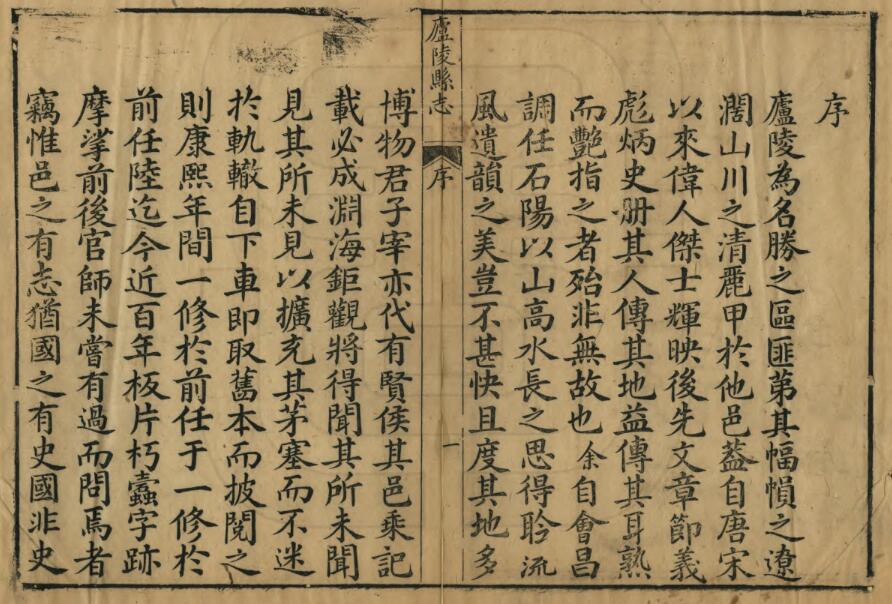 序
廬陵為名勝之區匪第其幅幀之遼
濶山川之清麗甲於他邑葢自唐宋
以來偉人傑士輝映後先文章節義
彪炳史册其人傳其地益傳其耳熟
而艷指之者殆非無故也余自會昌
調任石陽以山高水長之思得聆流
風遺韻之美豈不甚快且度其地多
廬陵縣志
序
一
博物君子宰亦代有賢侯其邑乘記
載必成淵海鉅觀將得聞其所未聞
見其所未見以擴充其茅塞而不迷
於軌轍自下車即取舊本而披閱之
則康熙年間一修於前任于一修於
前任陸迄今近百年板片朽蠧字跡
摩挲前後官師未嘗有過而問焉者
竊惟邑之有志猶國之有史國非史